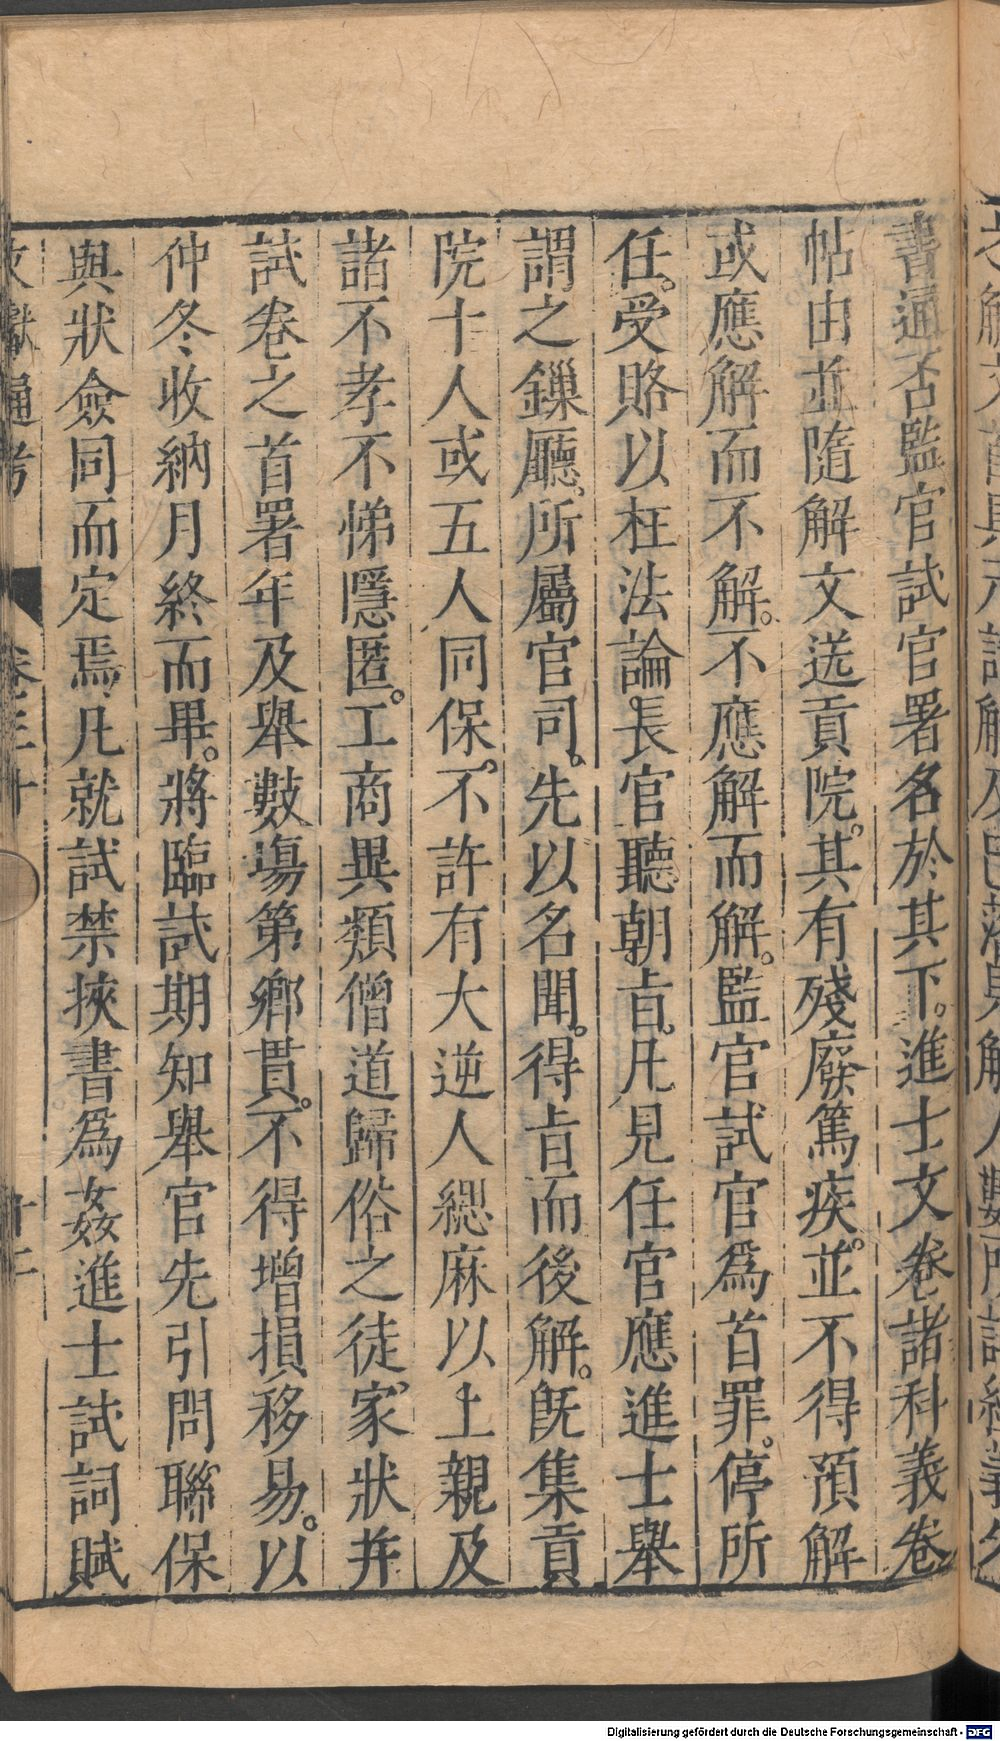 書通否監官試官署名於其下。進士文卷諸科義卷
帖由並隨解文送貢院。其有殘廢篤疾。並不得預解
或應解而不解。不應解而解。監官試官爲首罪。停所
任。受賂以枉法論。長官聽朝旨。凡見任官應進士舉
謂之鏁廳。所屬官司。先以名聞。得旨而後解。旣集貢
院十人或五人同保。不許有大逆人緦麻以上親及
諸不孝不悌隱匿。工商異類僧道歸俗之徒。家狀幷
試卷之首署年及舉數塲第鄉貫。不得增損移易。以
仲冬收納月終而畢。將臨試期知舉官先引問聯保
與狀僉同而定焉。凡就試禁挾書爲姦進士試詞賦
文獻通考 卷三十
Digitalisierung gefördert durch die Deutsche Forschungsgemeinschaft - DFG